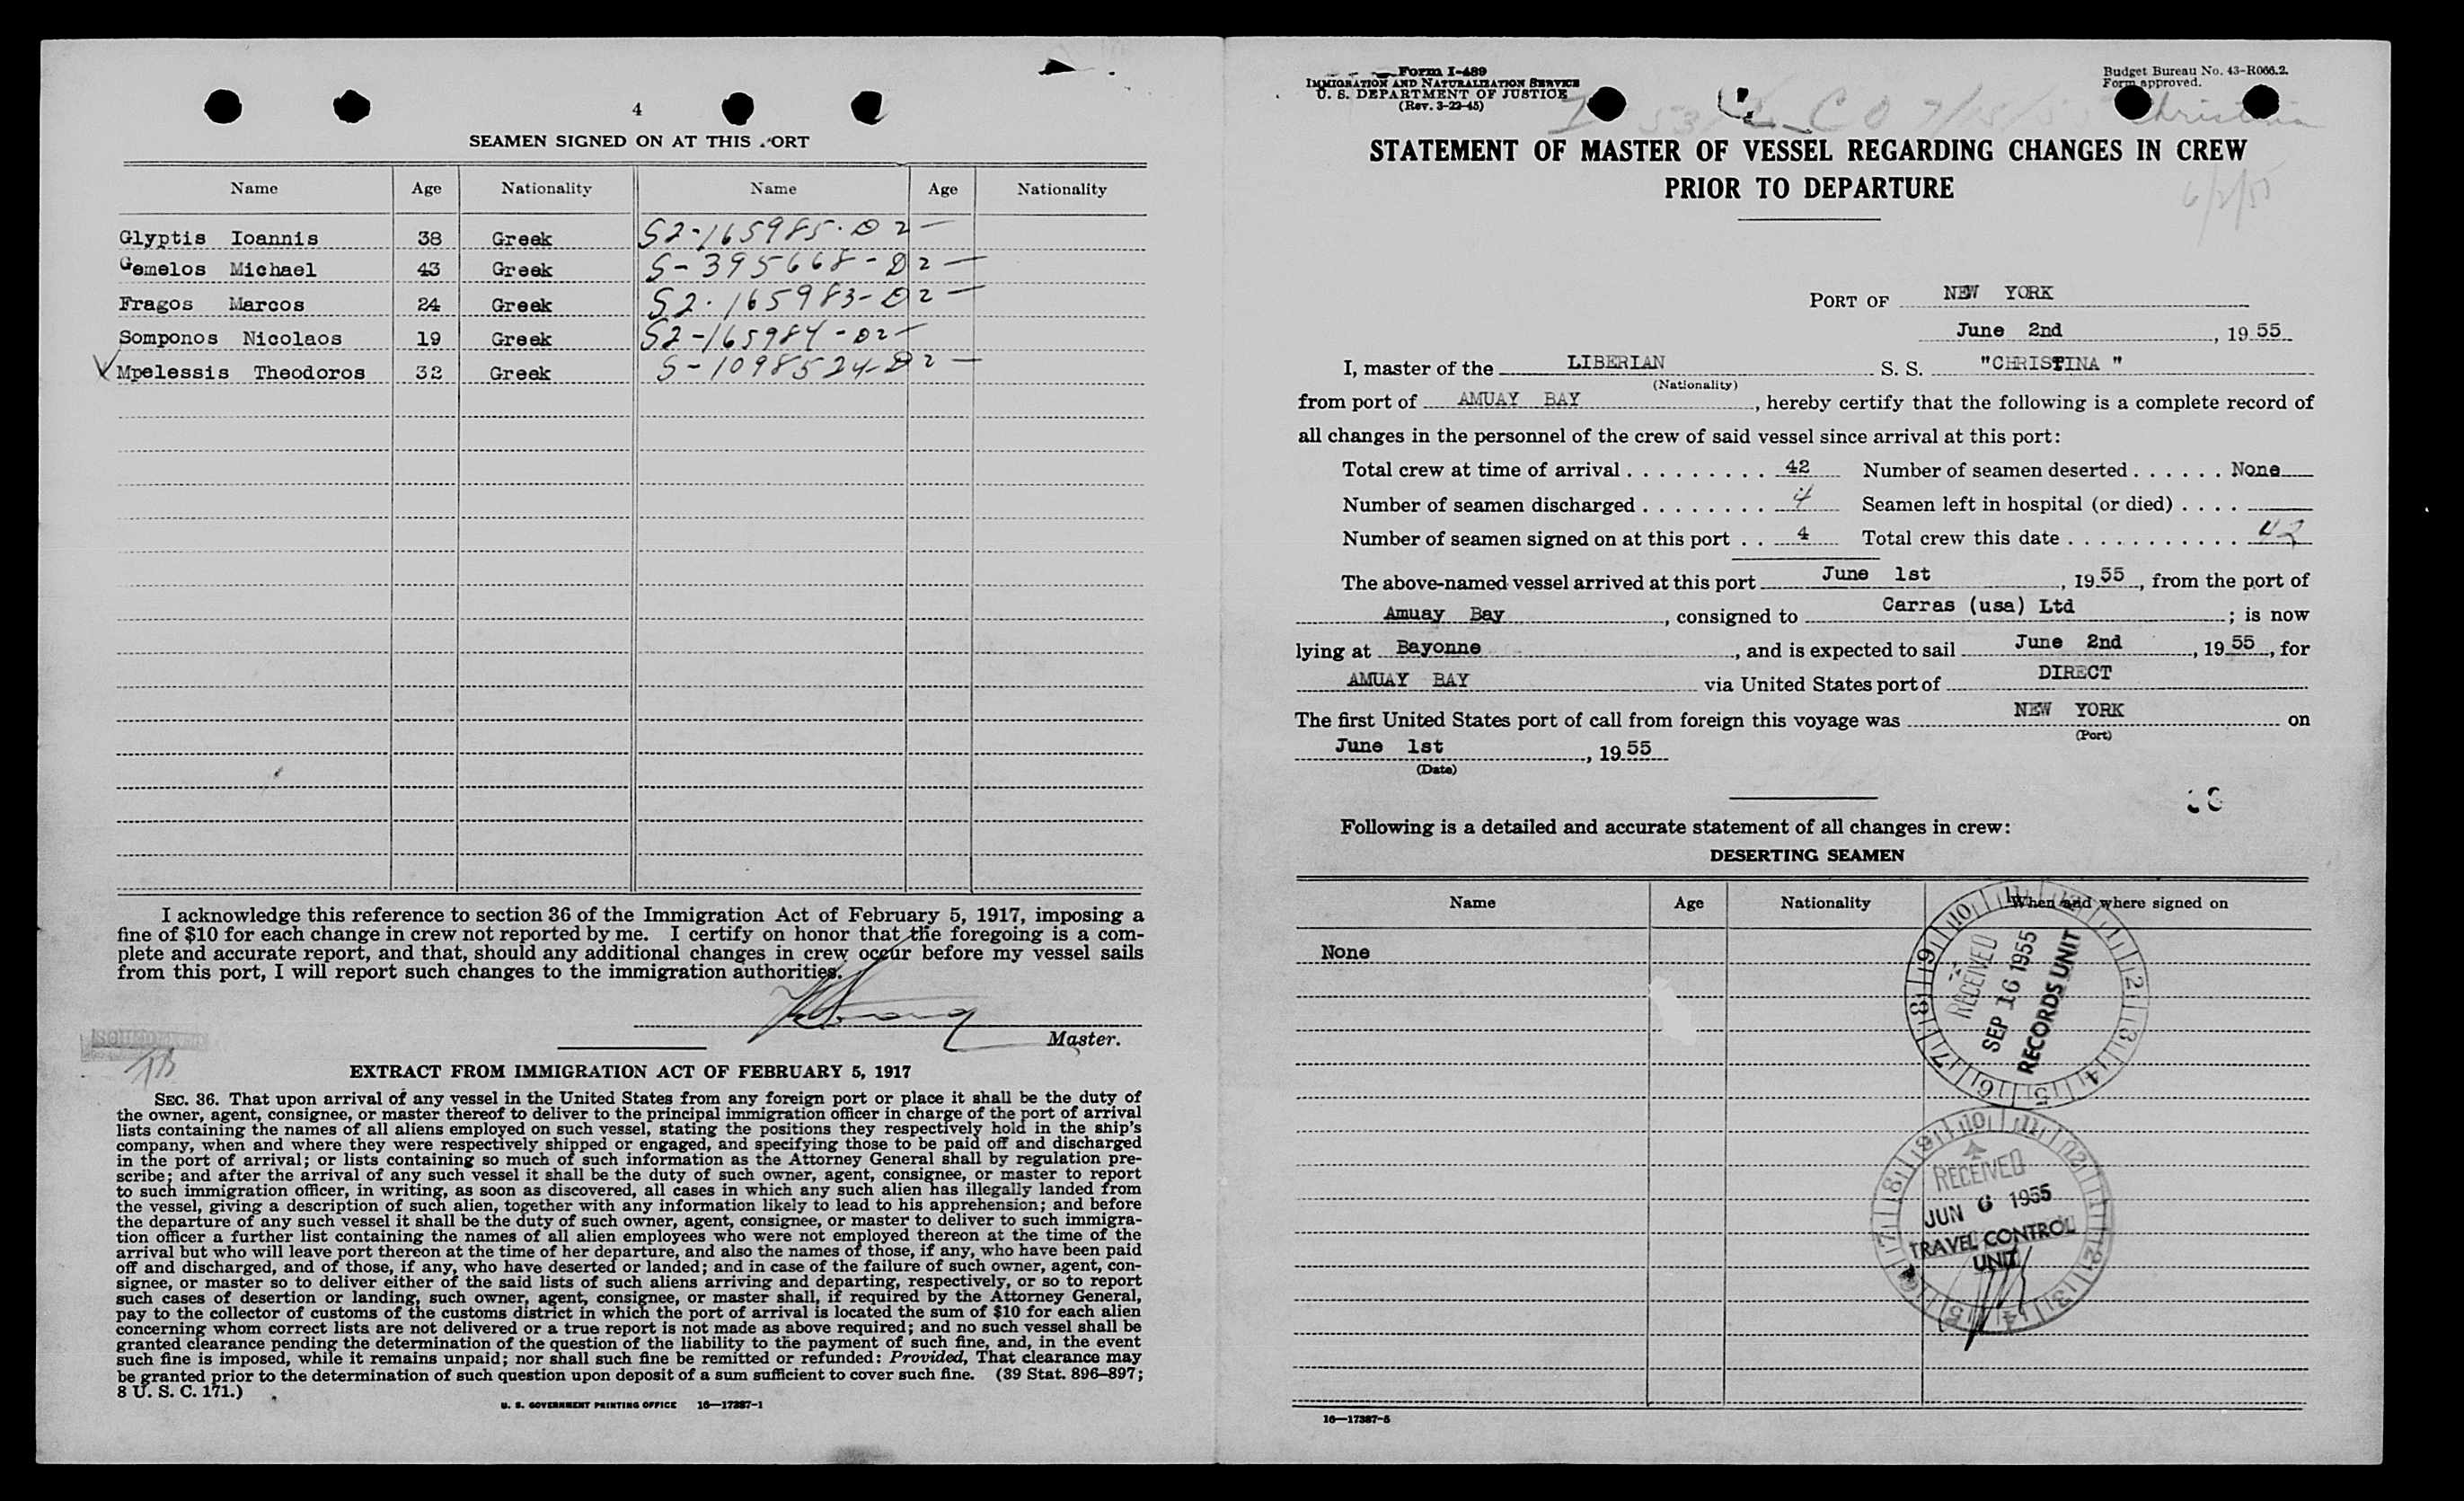 4
SEAMEN SIGNED ON AT THIS PORT
Name Age Nationality Name Age Nationality
Glyptis Ioannis 38 Greek S2-165985-D2 —
Gemelos Michael 43 Greek S-395668-D2 —
Fragos Marcos 24 Greek S2-165983-D2 —
Somponos Nicolaos 19 Greek S2-165984-D2 —
√ Mpelessis Theodoros 32 Greek S-1098524-D2 —
I acknowledge this reference to section 36 of the Immigration Act of February 5, 1917, imposing a
fine of $10 for each change in crew not reported by me. I certify on honor that the foregoing is a com-
plete and accurate report, and that, should any additional changes in crew occur before my vessel sails
from this port, I will report such changes to the immigration authorities.
Master.
EXTRACT FROM IMMIGRATION ACT OF FEBRUARY 5, 1917
SEC. 36. That upon arrival of any vessel in the United States from any foreign port or place it shall be the duty of
the owner, agent, consignee, or master thereof to deliver to the principal immigration officer in charge of the port of arrival
lists containing the names of all aliens employed on such vessel, stating the positions they respectively hold in the ship's
company, when and where they were respectively shipped or engaged, and specifying those to be paid off and discharged
in the port of arrival; or lists containing so much of such information as the Attorney General shall by regulation pre-
scribe; and after the arrival of any such vessel it shall be the duty of such owner, agent, consignee, or master to report
to such immigration officer, in writing, as soon as discovered, all cases in which any such alien has illegally landed from
the vessel, giving a description of such alien, together with any information likely to lead to his apprehension; and before
the departure of any such vessel it shall be the duty of such owner, agent, consignee, or master to deliver to such immigra-
tion officer a further list containing the names of all alien employees who were not employed thereon at the time of the
arrival but who will leave port thereon at the time of her departure, and also the names of those, if any, who have been paid
off and discharged, and of those, if any, who have deserted or landed; and in case of the failure of such owner, agent, con-
signee, or master so to deliver either of the said lists of such aliens arriving and departing, respectively, or so to report
such cases of desertion or landing, such owner, agent, consignee, or master shall, if required by the Attorney General,
pay to the collector of customs of the customs district in which the port of arrival is located the sum of $10 for each alien
concerning whom correct lists are not delivered or a true report is not made as above required; and no such vessel shall be
granted clearance pending the determination of the question of the liability to the payment of such fine, and, in the event
such fine is imposed, while it remains unpaid; nor shall such fine be remitted or refunded: Provided, That clearance may
be granted prior to the determination of such question upon deposit of a sum sufficient to cover such fine. (39 Stat. 896–897;
8 U. S. C. 171.)
U. S. GOVERNMENT PRINTING OFFICE 16—17387-1
Form I-489
IMMIGRATION AND NATURALIZATION SERVICE
U. S. DEPARTMENT OF JUSTICE
(Rev. 3-22-45)
Budget Bureau No. 43-R066.2.
Form approved.
Christina
STATEMENT OF MASTER OF VESSEL REGARDING CHANGES IN CREW
PRIOR TO DEPARTURE
6/2/55
PORT OF NEW YORK
June 2nd, 1955
I, master of the LIBERIAN S. S. "CHRISTINA "
(Nationality)
from port of AMUAY BAY, hereby certify that the following is a complete record of
all changes in the personnel of the crew of said vessel since arrival at this port:
Total crew at time of arrival . . . . . . . . . . 42 Number of seamen deserted . . . . . . None
Number of seamen discharged . . . . . . . . 4 Seamen left in hospital (or died) . . . .
Number of seamen signed on at this port . . 4 Total crew this date . . . . . . . . . . . 42
The above-named vessel arrived at this port June 1st, 1955, from the port of
Amuay Bay, consigned to Carras (usa) Ltd; is now
lying at Bayonne, and is expected to sail June 2nd, 1955, for
AMUAY BAY via United States port of DIRECT
The first United States port of call from foreign this voyage was NEW YORK on
(Port)
June 1st, 1955
(Date)
Following is a detailed and accurate statement of all changes in crew:
DESERTING SEAMEN
Name Age Nationality When and where signed on
None
RECEIVED
SEP 16 1955
RECORDS UNIT
RECEIVED
JUN 6 1955
TRAVEL CONTROL
UNIT
16—17387-5